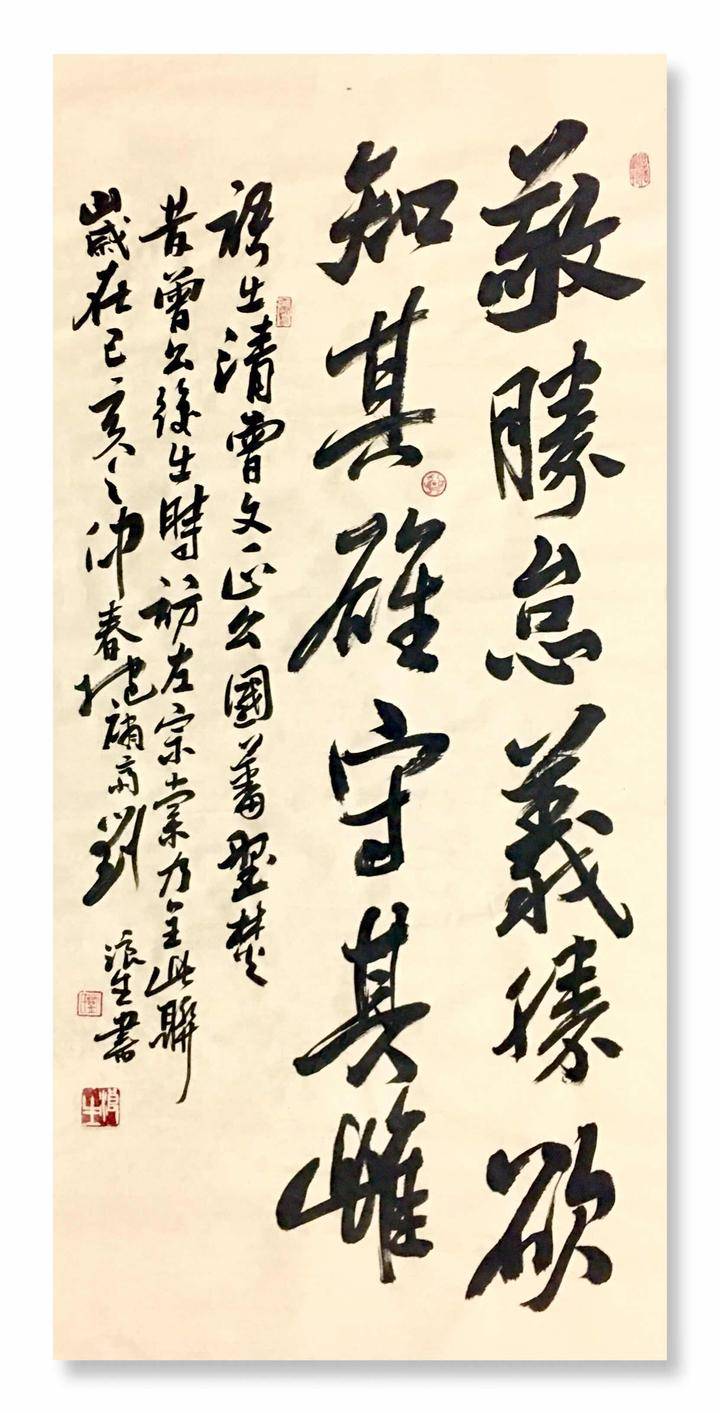 敬勝怠義勝欲
知其雄守其雌
語出清曾文正公國藩
昔曾公復出時訪左宗棠此聯
歲在己亥之仲春劉浪生書
浪生